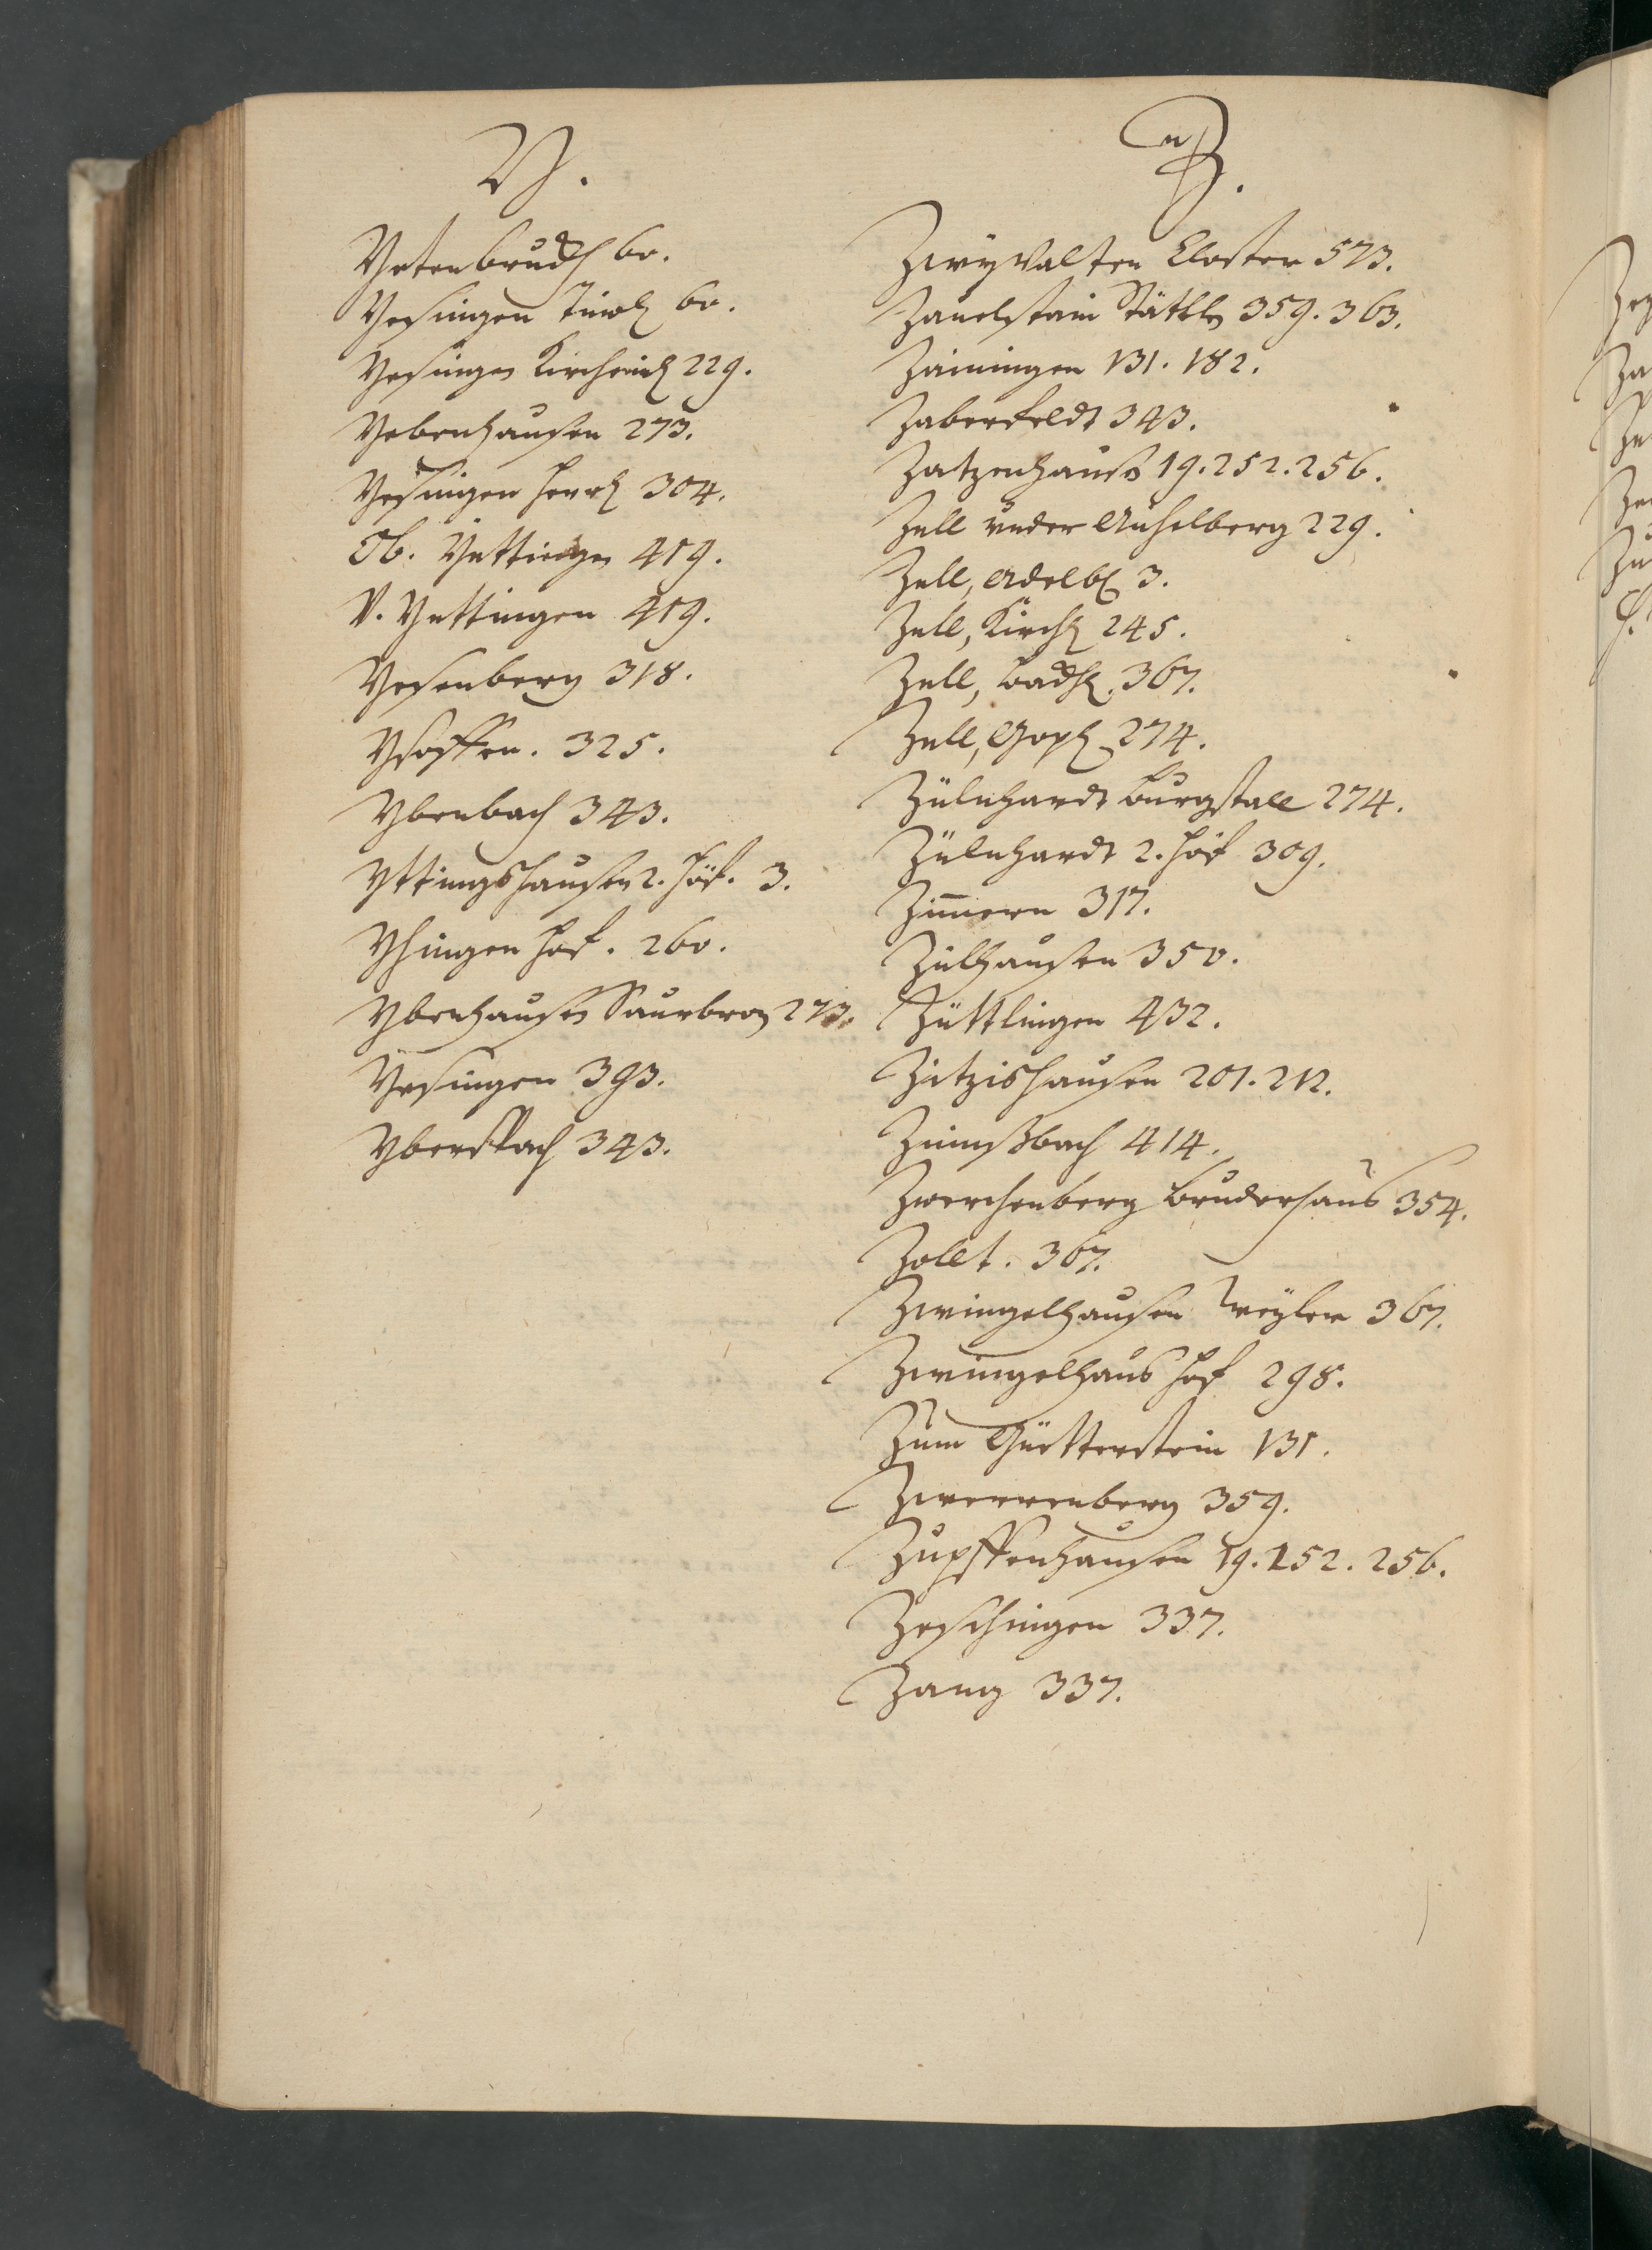 Y.
Yetenbruckh 60.
Yesingen 60.
Yesingen Kircheimb 229.
Yebenhausen 273.
Yesingen Herrb 304.
Ob. Yettingen 419.
V. Yettingen 419.
Yesenberg 318.
325.
Ybenbach 343.
Yttingshausen 2. Höf. 3.
Yhingen Hof. 260.
Ybenhausen Saurbron 273.
Yesingen 393.
Yberspach 343.
Z.
Zwyvalten Closter 573.
Zauelstain Stättle 359. 363.
Zainingen 131. 182.
Zaberfeldt 343.
Zatzenhauß 19. 252. 256.
Zell under Aichelberg 229.
Zell, Adelb 3.
Zell, Kirch 245.
Zell, Backh. 367.
Zell, Göpp 274.
Zülnhardt Burgstall 274.
Zülnhardt 2. Höf 309.
Zimmern 317.
Zilhausen 350.
Züttlingen 432.
Zitzishausen 201. 212.
Zinnßbach 414.
Zwerchenberg Bruderhaus 354.
Zollt. 367.
Zwingelhausen Weyler 367.
Zwingelhaus Hof 298.
Zum Güetterstein 131.
Zwerrenberg 359.
Zupffenhausen 19. 252. 256.
Zeschingen 337.
Zang 337.